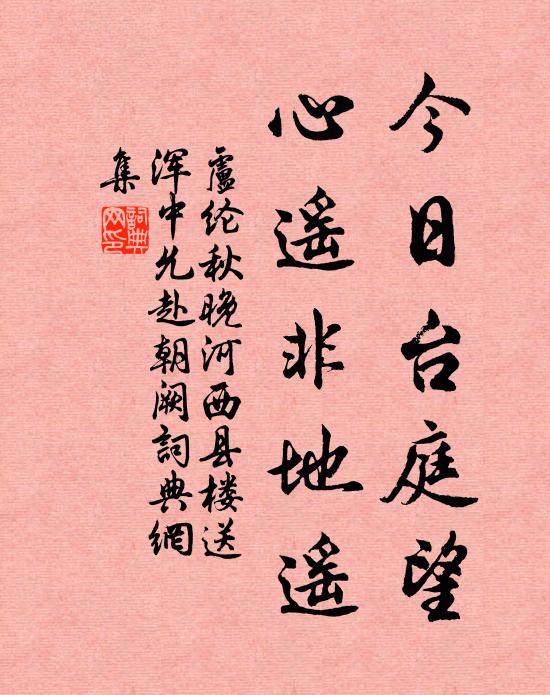 今日台庭望
心遥非地遥
盧纶秋晚河西县楼送
浑中允赴朝阙詞典網
集
詞典
网印